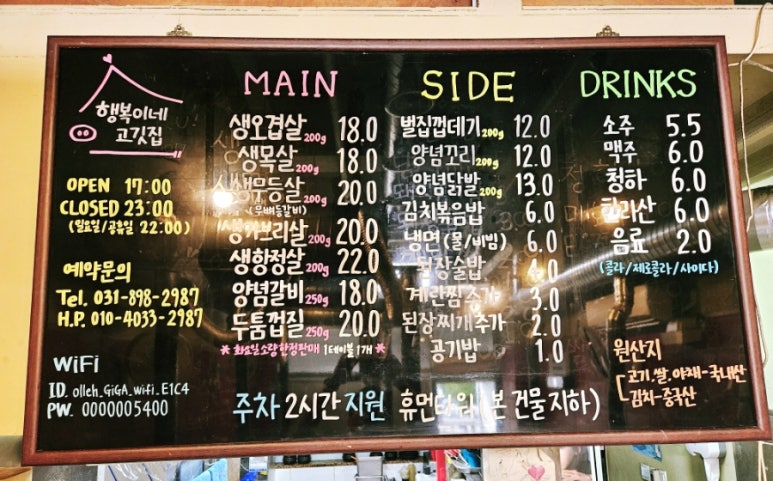 행복이네
고깃집
OPEN 17:00
CLOSED 23:00
(일요일/공휴일 22:00)
예약문의
Tel. 031-898-2987
H.P. 010-4033-2987
WiFi
ID. olleh_GiGA_Wifi_E1C4
PW. 0000005400
MAIN
생오겹살 200g 18.0
생목살 200g 18.0
생무등살 200g 20.0
(우뼈등갈비)
200g 20.0
생항정살 200g 22.0
양념갈비 250g 18.0
두툼껍질 250g 20.0
*화요일소량한정판매 1테이블1개*
SIDE
벌집껍데기 200g 12.0
양념꼬리 200g 12.0
양념닭발 200g 13.0
김치볶음밥 6.0
냉면(물/비빔) 6.0
된장술밥
계란찜추가 3.0
된장찌개추가 2.0
공기밥 1.0
DRINKS
소주 5.5
맥주 6.0
청하 6.0
한라산 6.0
음료 2.0
(콜라/제로콜라/사이다)
원산지
고기.쌀.야채-국내산
김치-중국산
주차 2시간 지원 휴먼타워(본 건물 지하)